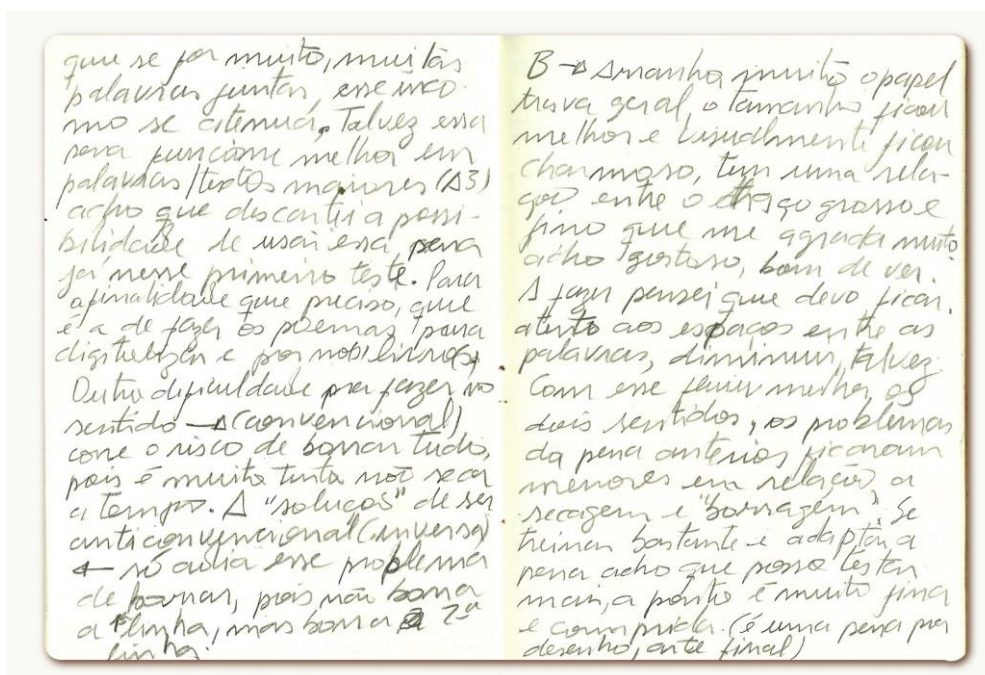 que se for muito, muitas
palavras juntas, esse incô-
mo se atenua. Talvez essa
pena funcione melhor em
palavras/textos maiores (A3)
acho que descartei a possi-
bilidade de usar essa pena
já nesse primeiro teste. Para
a finalidade que preciso, que
é a de fazer os poemas para
digitalizar e por no
Outra dificuldade por fazer no
sentido → (convencional)
corre o risco de borrar tudo,
pois é muita tinta não seca
a tempo. A "solução" de ser
anticonvencional (inversa)
← só avia esse problema
de borrar, pois não borra
a 1ª linha, mas borra a 2ª
linha.
B → Arranha muito o papel
trava geral, o tamanho ficou
melhor e visualmente ficou
charmoso, tem uma rela-
ção entre o traço grosso e
fino que me agrada muito
acho gostoso, bom de ver.
A fazer pensei que devo ficar
atento aos espaços entre as
palavras, diminuir, talvez
Com esse fluiu melhor os
dois sentidos, os problemas
da pena anterior ficaram
menores em relação a
secagem e "borragem". Se
treinar bastante e adaptar a
pena acho que posso testar
mais, a ponta é muito fina
e comprida. (é uma pena pra
desenho, arte final)